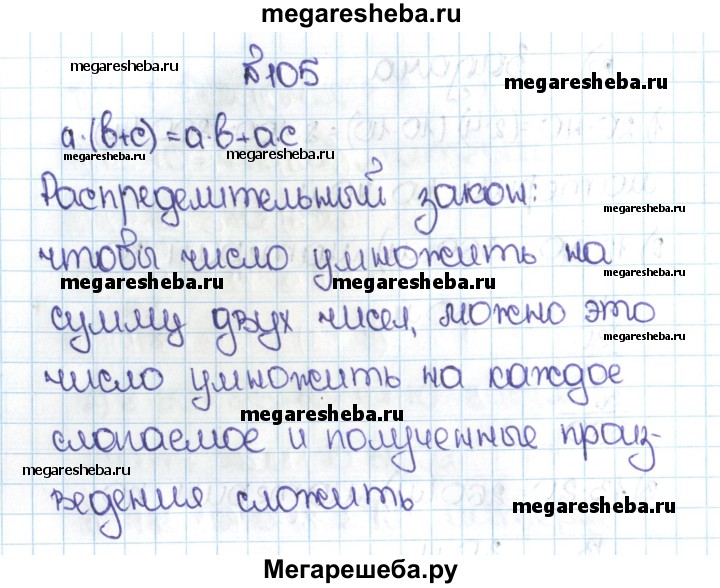 megaresheba.ru
№105
megaresheba.ru
megaresheba.ru
a·(b+c)=a·b+a·c
megaresheba.ru
megaresheba.ru
Распределительный закон:
megaresheba.ru
чтобы число умножить на
megaresheba.ru
megaresheba.ru
megaresheba.ru
сумму двух чисел, можно это
число умножить на каждое
megaresheba.ru
слагаемое и полученные произ-
megaresheba.ru
ведения сложить
megaresheba.ru
Мегарешеба.ру